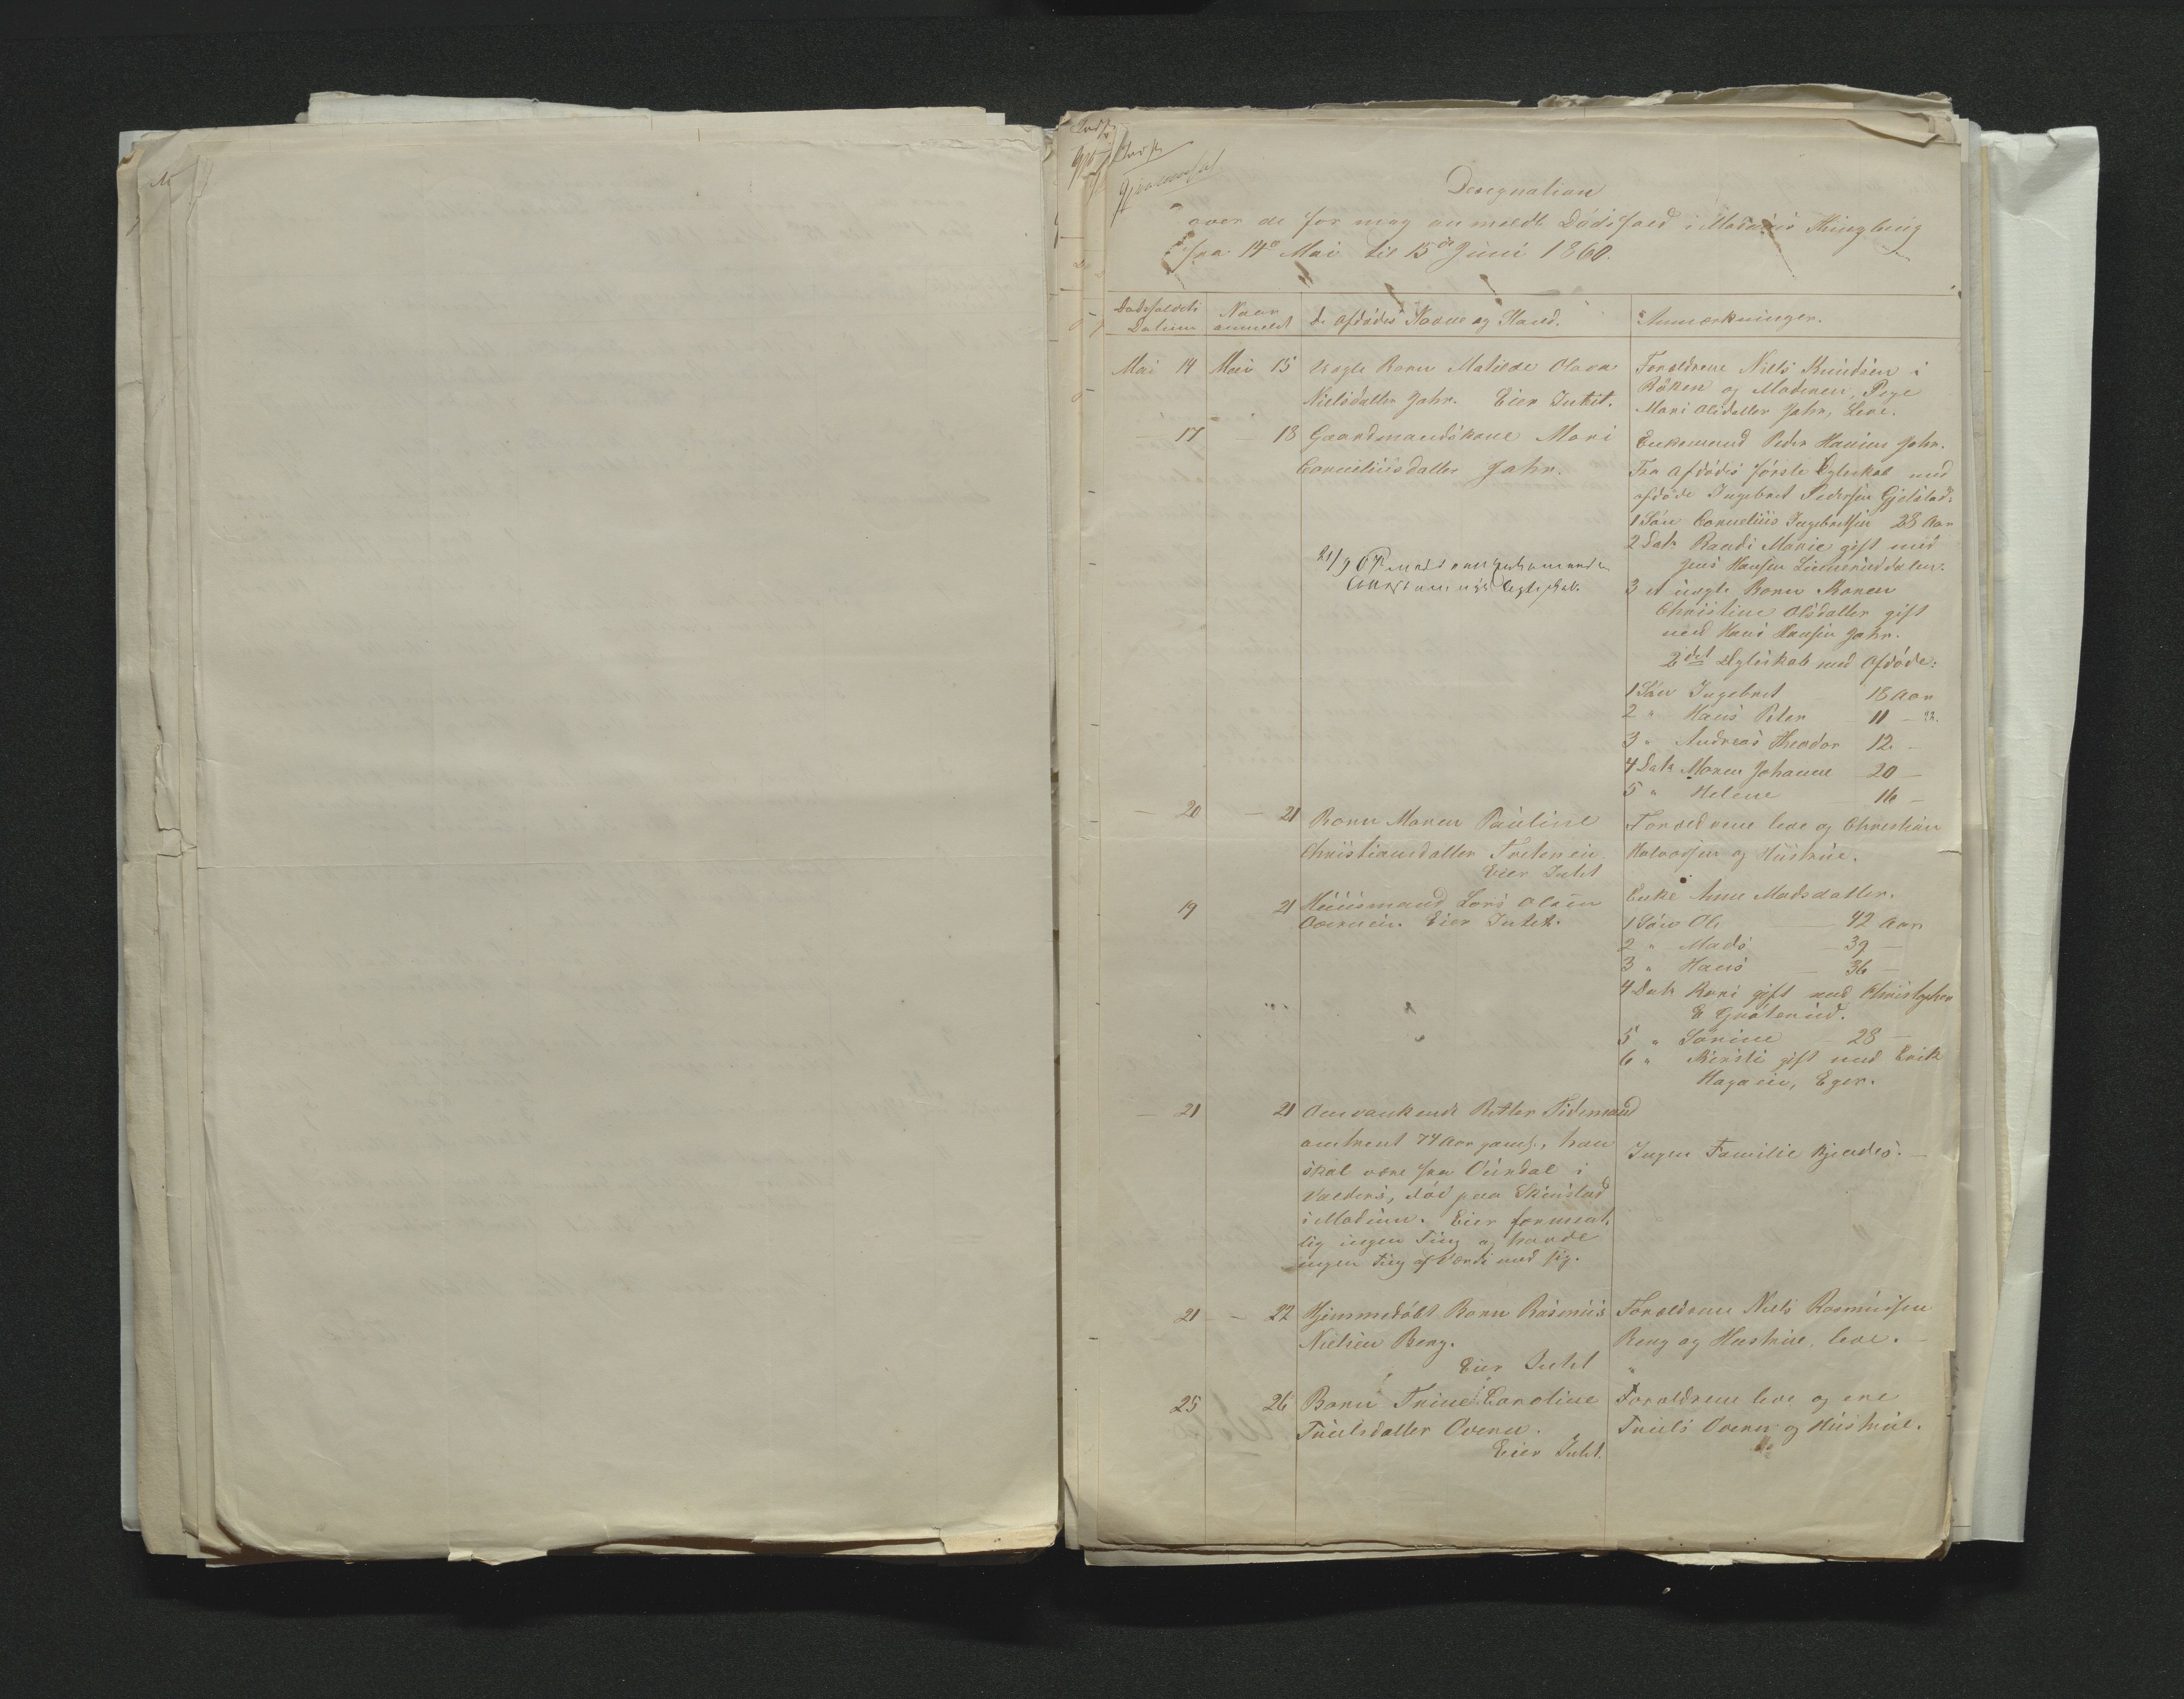 Designation
over de for mig anmeldte Dødsfald i Modums Thinglaug
fra 14de Mai til 15de Juni 1860.
Dødsfaldets Datum
Naar anmeldt
De afdødes Navne og Stand.
Anmærkninger.
Mai 14 Mai 15 Uægte Barn Matilde Olava
Nielsdatter Jahr. Eier Intet.
Forældrene Niels Knudsen i
Røken og Moderen, Pige
Mari Olsdatter Jahr, Leve.
— 17 — 18 Gaardmandskone Mari
Corneliusdatter Jahr.
Enkemand Peder Hansen Jahr.
Fra Afdødes første Egteskab med
afdøde Ingebret Pedersen Gjelstad:
1 Søn Cornelius Ingebretsen 28 Aar
2 Datr Randi Marie gift med
Jens Hansen
3 et uægte Barn Maren
Christine Olsdatter gift
med Hans Hansen Jahr.
2det Egteskab med Afdøde:
1 Søn Ingebret 18 Aar
2 " Hans Peter 11 —
3 " Andreas Theodor 12 —
4 Datr Maren Johanne 20 —
5 " Helene 16 —
— 20 — 21 Barn Maren Pauline
Christiansdatter
Eier Intet
Forældrene leve og Christian
Halvorsen og Hustrue.
19 21 Huusmand Lars Olsen
Overneie. Eier Intet.
Enke Anne Madsdatter.
1 Søn Ole — 42 Aar
2 " Mads — 39 —
3 " Hans — 36 —
4 Datr Kari gift med Christopher
E
5 " Sørine 28 —
6 " Kirsti gift med Erik
Eger.
— 21 21 Omvankende Betler Tidemand
omtrent 74 Aar gaml., han
skal være fra Øurdal i
Valders, død paa Skinstad
i Modum. Eier forment-
lig ingen Ting og havde
ingen ting af Værdi med sig.
Ingen Familie kjendes. —
21 — 22 Hjemmedøbt Barn Rasmus
Nielsen Berg.
Eier Intet
Forældrene Niels Rasmussen
Berg og Hustrue, leve. —
25 26 Barn Trine Karoline
Truulsdatter Overn.
Eier Intet.
Forældrene leve og ere
Truuls Overn og Hustrue.